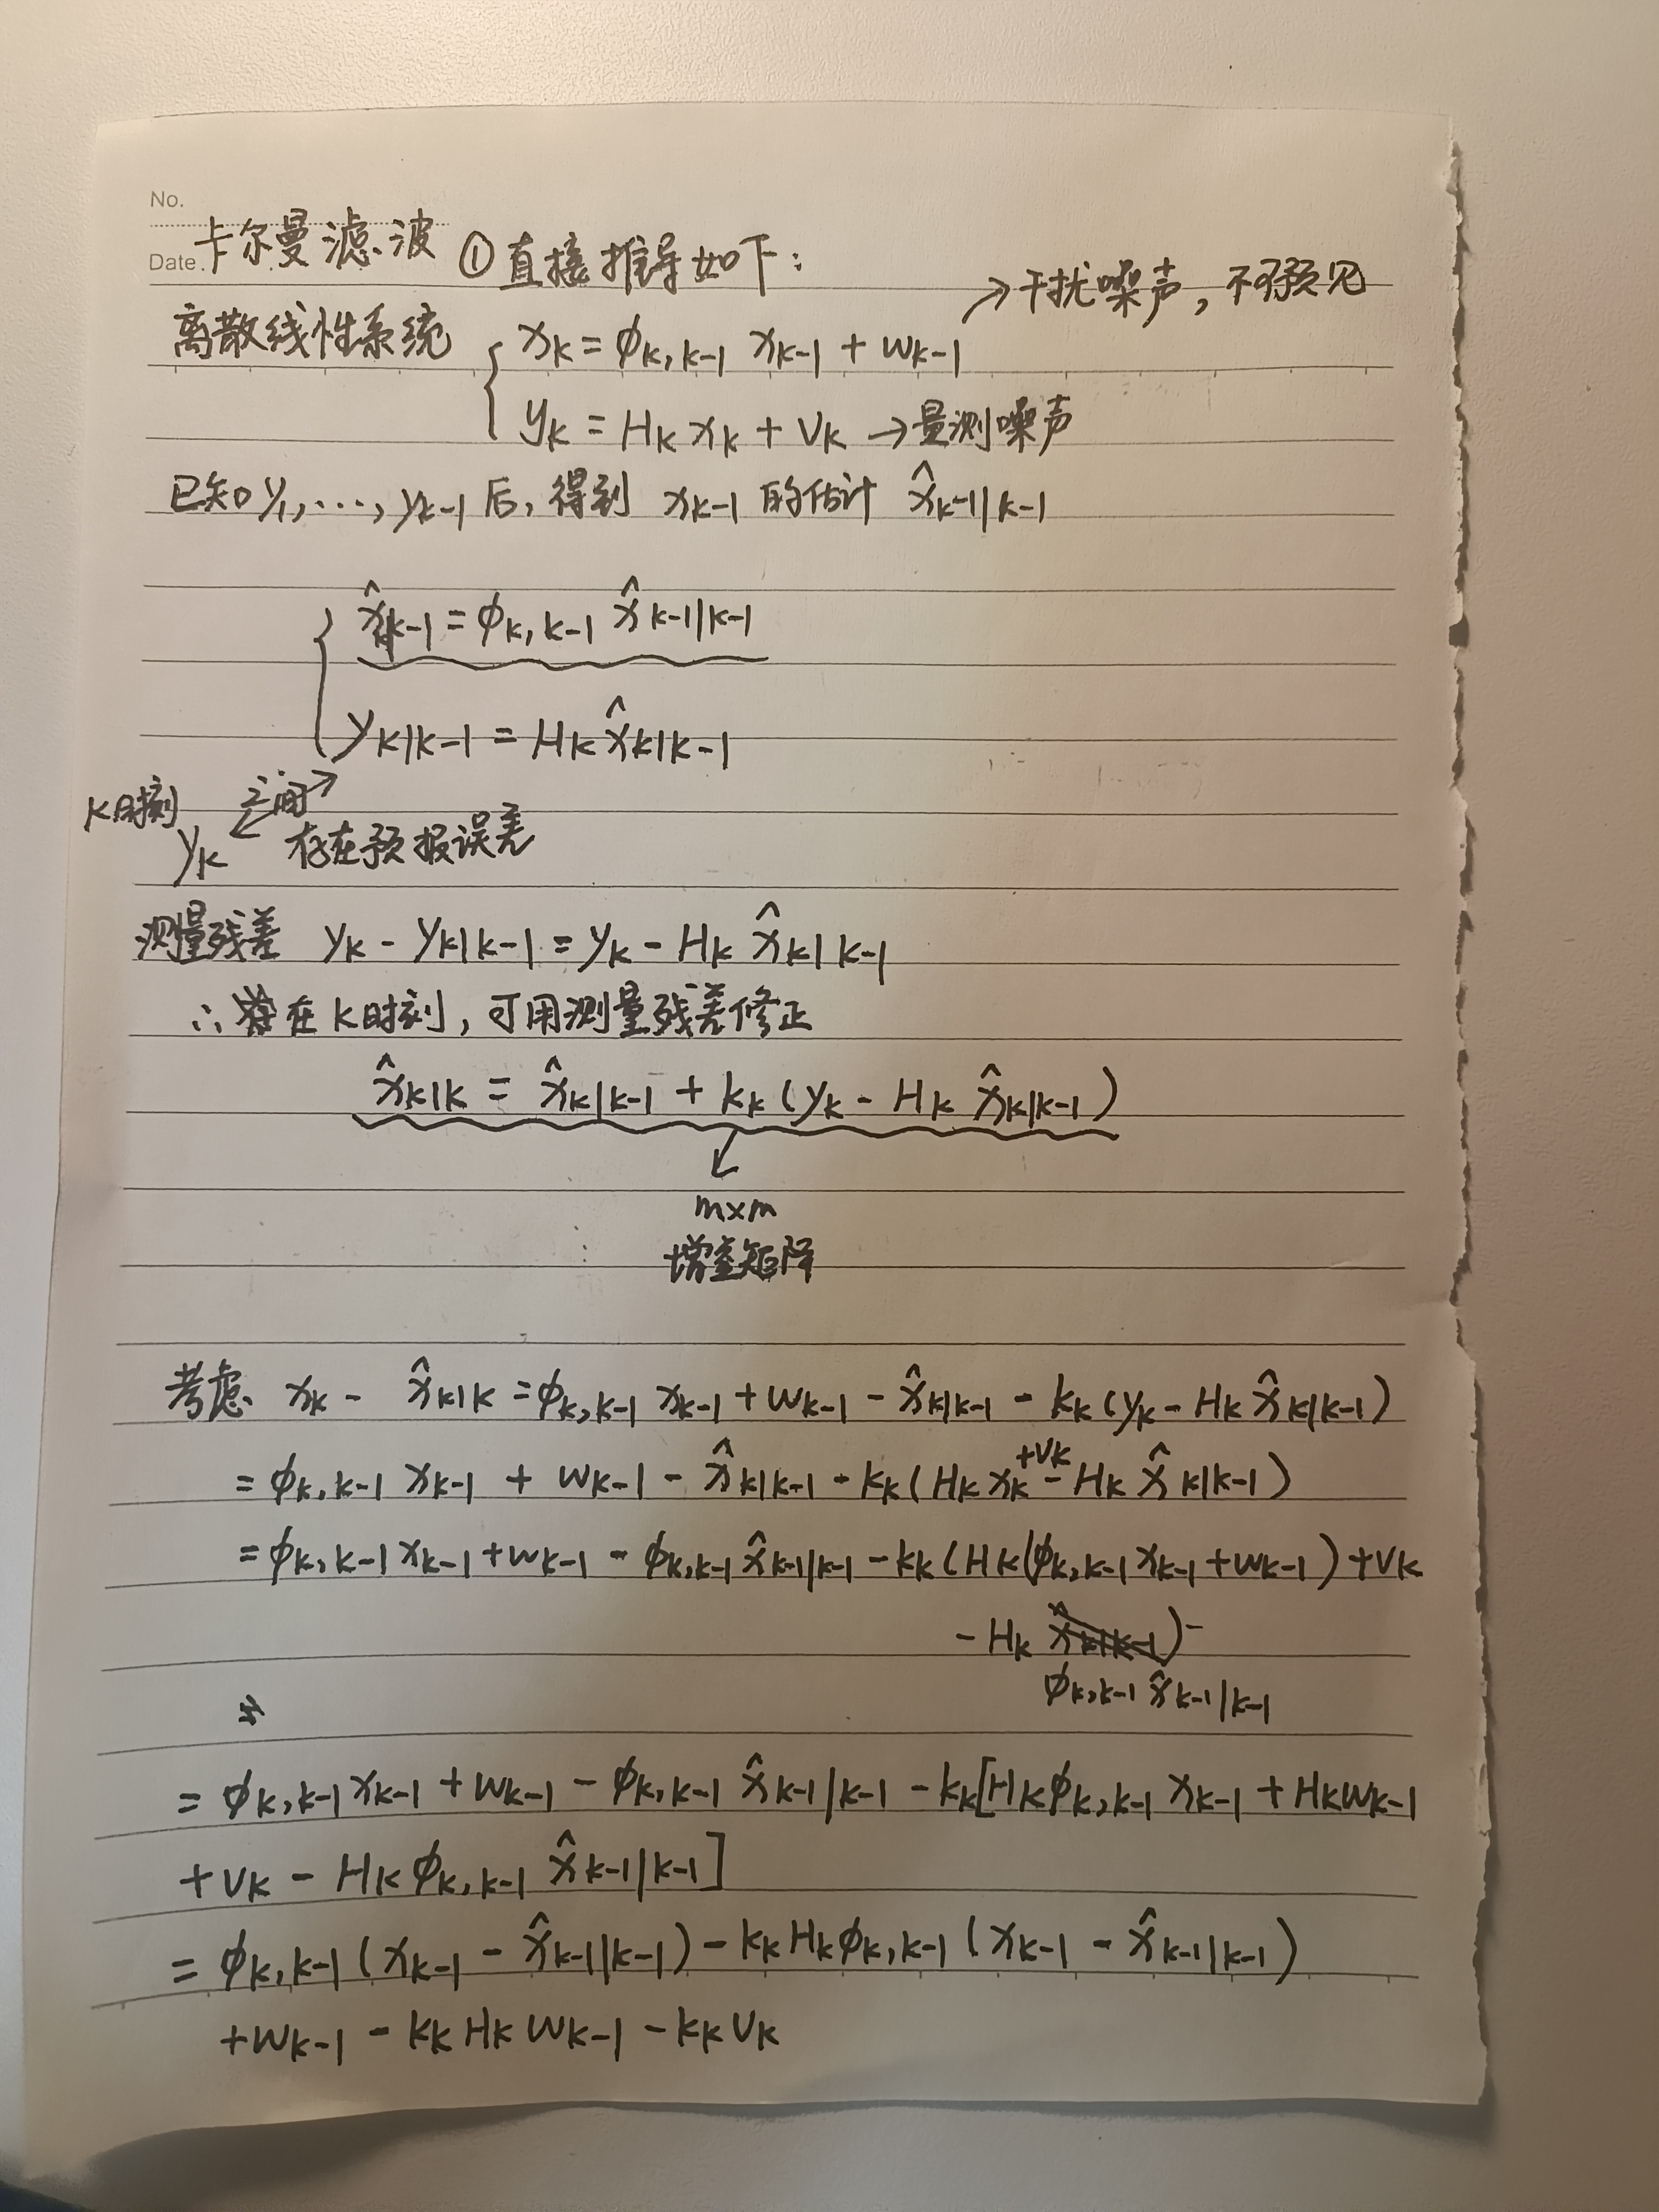 No.
Date.
卡尔曼滤波 ①直接推导如下:
→干扰噪声,不可预见
离散线性系统 { xₖ = φₖ,ₖ₋₁ xₖ₋₁ + wₖ₋₁
yₖ = Hₖ xₖ + vₖ →量测噪声
已知y₁,…,yₖ₋₁后,得到 xₖ₋₁ 的估计 x̂ₖ₋₁|ₖ₋₁
{ x̂ₖₖ₋₁ = φₖ,ₖ₋₁ x̂ₖ₋₁|ₖ₋₁
yₖ|ₖ₋₁ = Hₖ x̂ₖ|ₖ₋₁
k时刻 之间
yₖ 存在预报误差
测量残差 yₖ - yₖ|ₖ₋₁ = yₖ - Hₖ x̂ₖ|ₖ₋₁
∴在k时刻,可用测量残差修正
x̂ₖ|ₖ = x̂ₖ|ₖ₋₁ + kₖ(yₖ - Hₖ x̂ₖ|ₖ₋₁)
m×m
增益矩阵
考虑 xₖ - x̂ₖ|ₖ = φₖ,ₖ₋₁ xₖ₋₁ + wₖ₋₁ - x̂ₖ|ₖ₋₁ - kₖ(yₖ - Hₖ x̂ₖ|ₖ₋₁)
= φₖ,ₖ₋₁ xₖ₋₁ + wₖ₋₁ - x̂ₖ|ₖ₋₁ - kₖ(Hₖ xₖ +vₖ - Hₖ x̂ₖ|ₖ₋₁)
= φₖ,ₖ₋₁ xₖ₋₁ + wₖ₋₁ - φₖ,ₖ₋₁ x̂ₖ₋₁|ₖ₋₁ - kₖ(Hₖ(φₖ,ₖ₋₁ xₖ₋₁ + wₖ₋₁) + vₖ
- Hₖ x̂ₖ|ₖ₋₁)
φₖ,ₖ₋₁ x̂ₖ₋₁|ₖ₋₁
= φₖ,ₖ₋₁ xₖ₋₁ + wₖ₋₁ - φₖ,ₖ₋₁ x̂ₖ₋₁|ₖ₋₁ - kₖ[Hₖφₖ,ₖ₋₁ xₖ₋₁ + Hₖwₖ₋₁
+ vₖ - Hₖφₖ,ₖ₋₁ x̂ₖ₋₁|ₖ₋₁]
= φₖ,ₖ₋₁(xₖ₋₁ - x̂ₖ₋₁|ₖ₋₁) - kₖHₖφₖ,ₖ₋₁(xₖ₋₁ - x̂ₖ₋₁|ₖ₋₁)
+ wₖ₋₁ - kₖHₖwₖ₋₁ - kₖvₖ